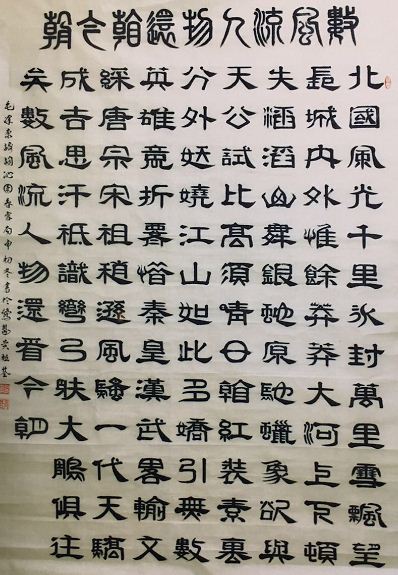 數風流人物還看今朝
北國風光千里冰封萬里雪飄望
長城內外惟餘莽莽大河上下頓
失滔滔山舞銀蛇原馳蠟象欲與
天公試比高須晴日看紅裝素裹
分外妖嬈江山如此多嬌引無數
英雄竟折腰惜秦皇漢武畧輸文
綵唐宗宋祖稍遜風騷一代天驕
成吉思汗祗識彎弓射大鵰俱往
矣數風流人物還看今朝
毛澤東詩詞沁園春雪丙申初冬書於